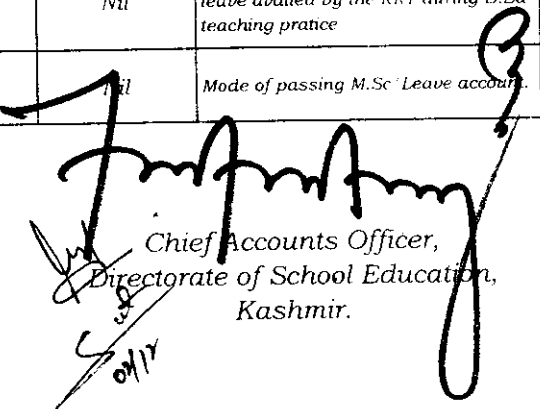 Nil leave availed by the RRT during B.Ed
teaching pratice
Nil Mode of passing M.Sc Leave account.
Chief Accounts Officer,
Directorate of School Education,
Kashmir.